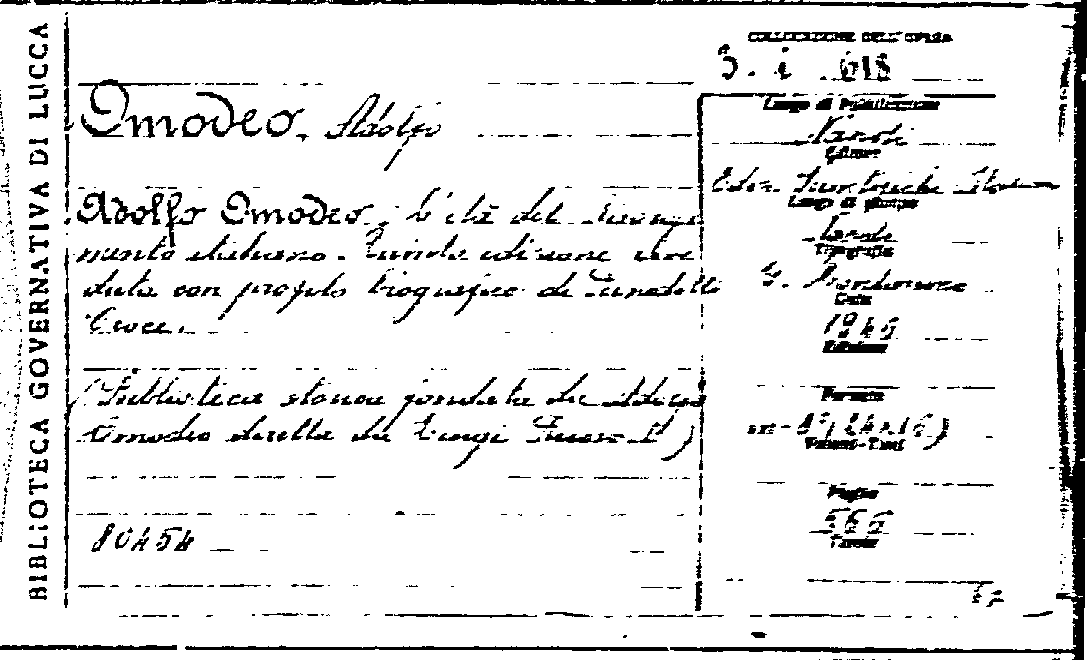 BIBLIOTECA GOVERNATIVA DI LUCCA
COLLOCAZIONE DELL'OPERA
3. i . 618
Omodeo, Adolfo
Adolfo Omodeo, L'età del Risorgi
mento italiano. Quinta edizione rive
duta con profilo biografico di Benedetto
Croce.
(Biblioteca storica fondata da Adolfo
Omodeo diretta da Luigi Russo)
80454
Luogo di Pubblicazione
Napoli
Editore
Ediz. Scientifiche Italiane
Luogo di stampa
Napoli
Tipografia
G.
Data
1946
Edizione
Formato
in-8°(24x16)
Volumi-Tomi
Pagine
566
Tavole